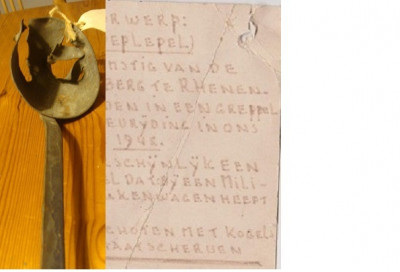 RWERP:
EPLEPEL)
MSTIG VAN DE
BERG TE RHENEN.
DEN IN EEN GREPPEL
EURYDING IN ONS
1946.
SCHÿNLÿK EEN
L DAT BY EEN MILI-
KENWAGEN HEEFT
CHOTEN MET KOGELS
AATSCHERVEN